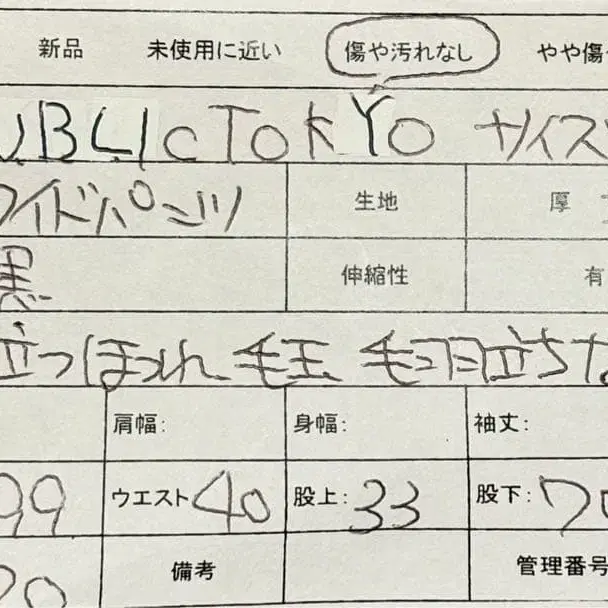 新品 未使用に近い 傷や汚れなし やや傷
UBLIC TOKYO サイズ
ワイドパンツ 生地 厚
黒 伸縮性 有
立つほつれ 毛玉 毛羽立ちな
肩幅: 身幅: 袖丈:
99 ウエスト 40 股上: 33 股下: 70
20 備考 管理番号